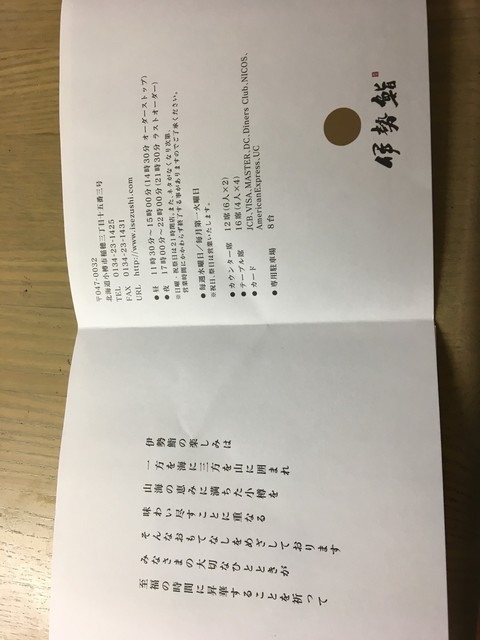 伊勢鮨の楽しみは
一方を海に三方を山に囲まれ
山海の恵みに満ちた小樽を
味わい尽すことに重なる
そんなおもてなしをめざしております
みなさまの大切なひとときが
至福の時間に昇華することを祈って
〒047-0032
北海道小樽市稲穂三丁目十五番三号
TEL 0134-23-1425
FAX 0134-23-1431
URL http://www.isezushi.com
●昼 11時30分～15時00分(14時30分 オーダーストップ)
●夜 17時00分～22時00分(21時30分 ラストオーダー)
※日曜・祝祭日は21時閉店。また、ネタがなくなり次第、
営業時間にかかわらず終了する事がありますのでご了承ください。
●毎週水曜日／毎月第一火曜日
※祝日、祭日は営業いたします。
●カウンター席 12席(6人×2)
●テーブル席 16席(4人×4)
●カード JCB,VISA,MASTER,DC,Diners Club,NICOS,
AmericanExpress,UC
●専用駐車場 8台
伊勢鮨